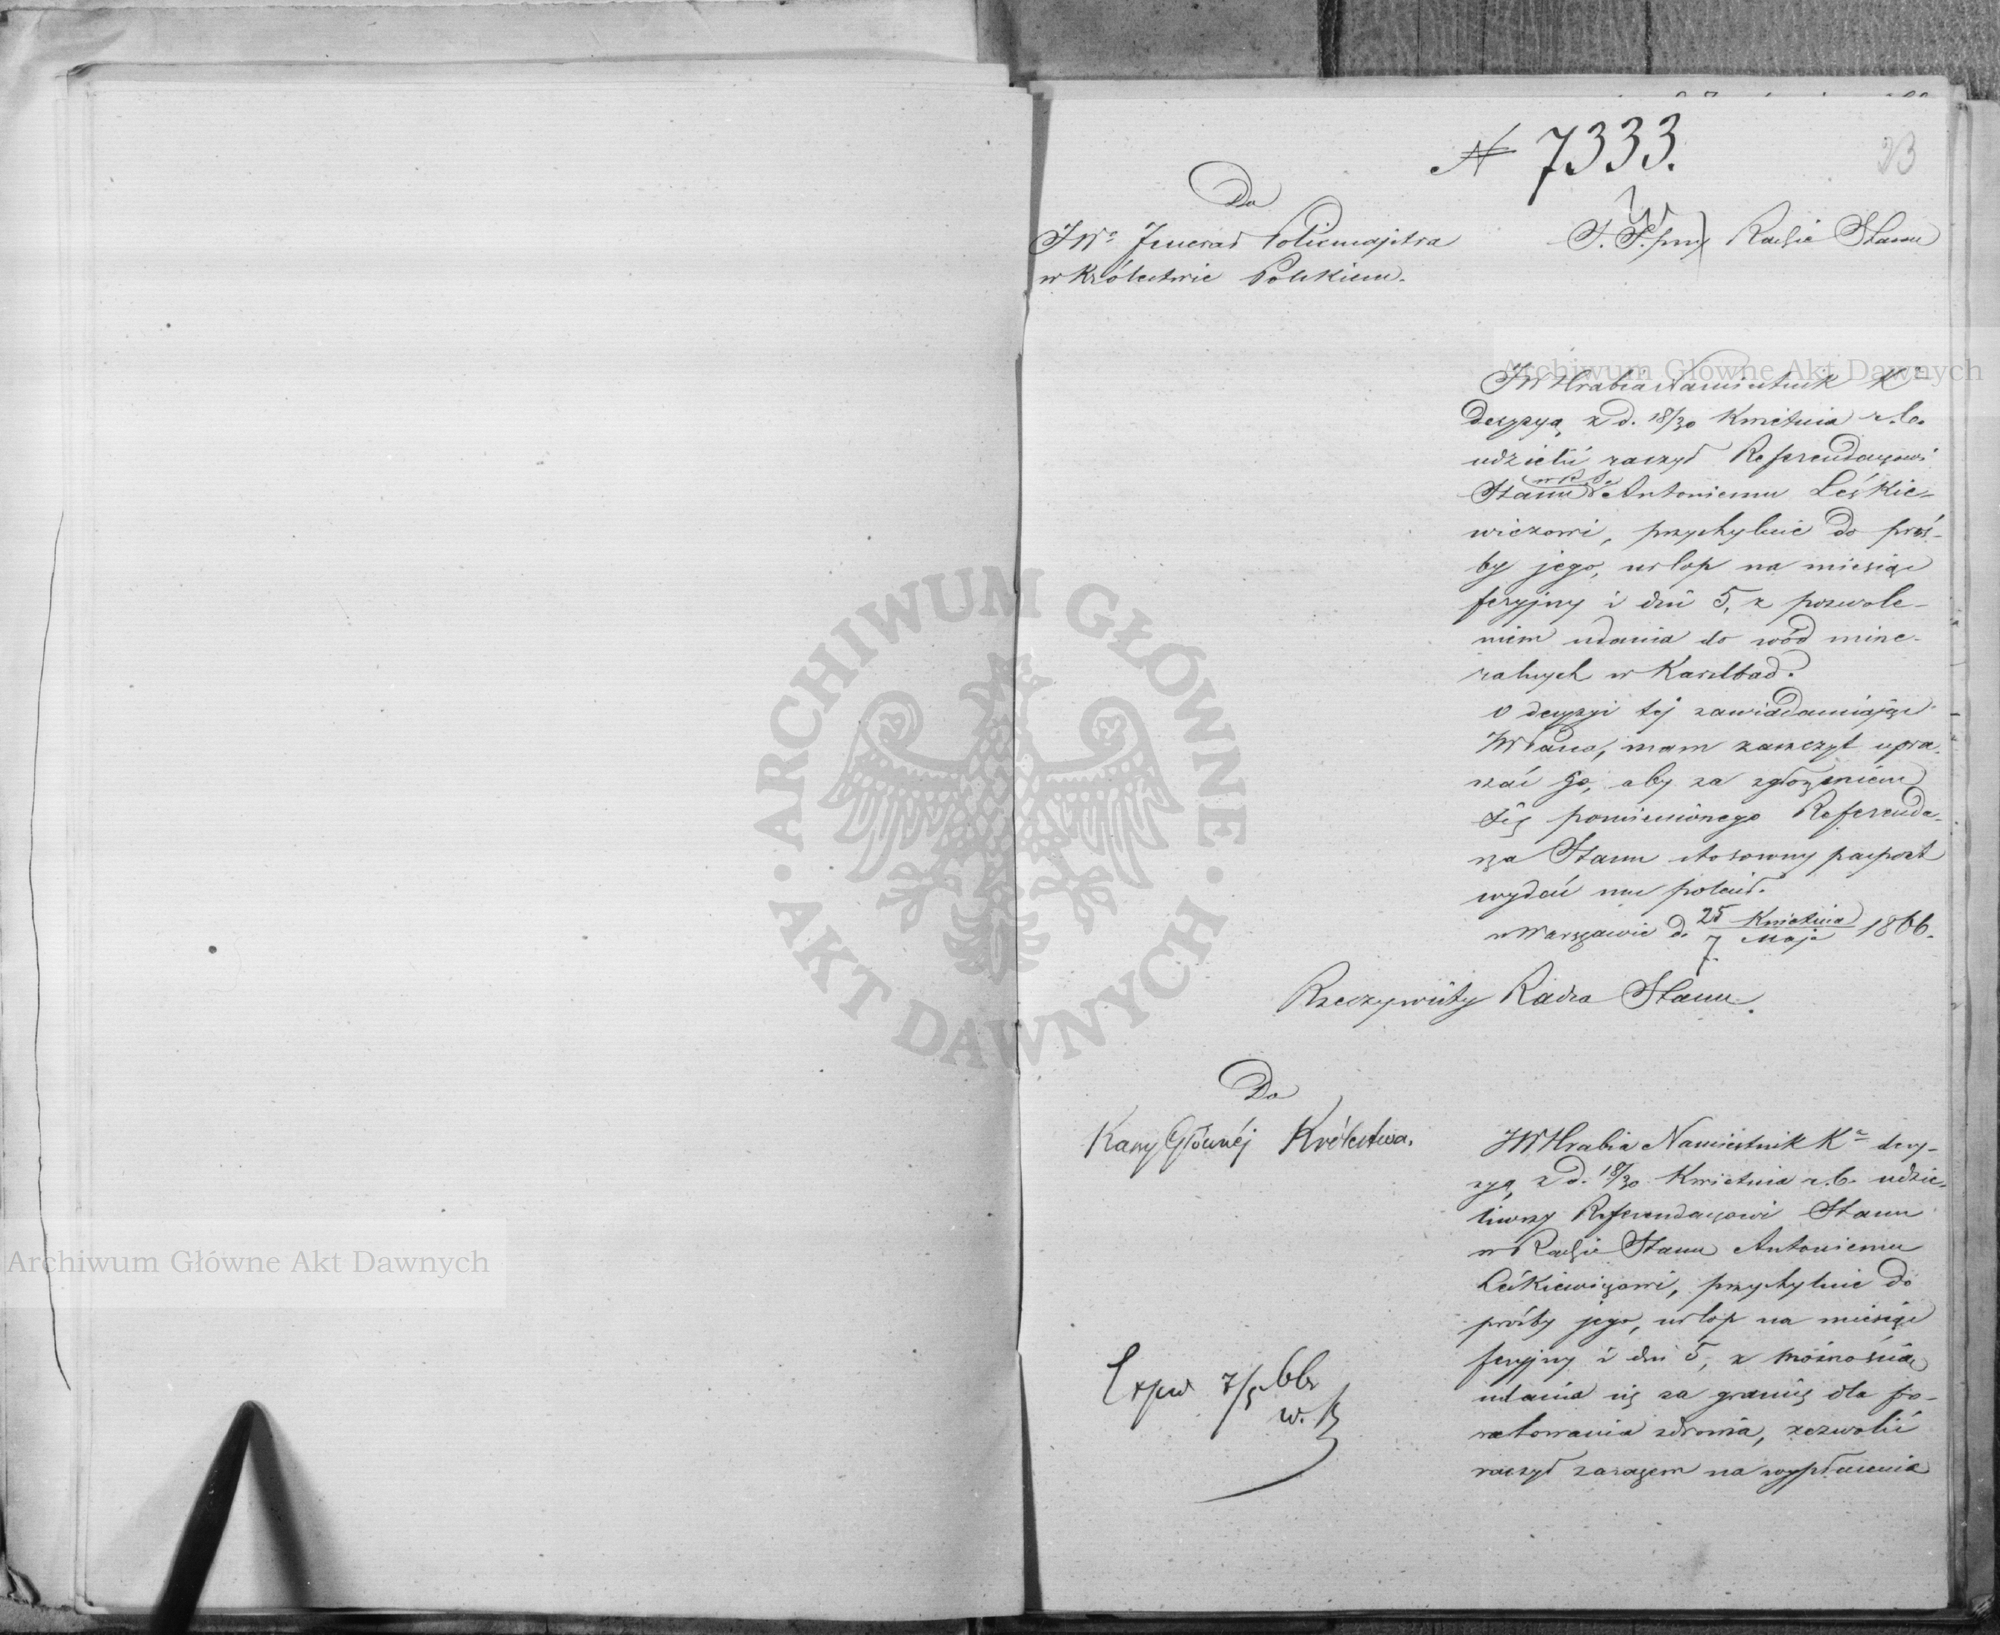 № 7333.
23
Do
JWo Jenerał Policmajstra
w Królestwie Polskiem.
S. S. przy Radzie Stanu
JW Hrabia Namiestnik Ka
decyzyą z d. 18/30 Kwietnia r. b.
udzielić raczył Referendarzowi
Stanu w R. S. Antoniemu Leśkie-
wiczowi, przychylnie do proś-
by jego, urlop na miesiąc
feryjny i dni 5, z pozwole-
niem udania do wód mine-
ralnych w Karlsbad.
O decyzyi tej zawiadamiając
JW Pana, mam zaszczyt upra-
szać Go, aby za zgłoszeniem
się pomienionego Referenda-
rza Stanu stosowny paszport
wydać mu polecił.
w Warszawie d. 25 Kwietnia / 7 Maja 1866.
Rzeczywisty Radca Stanu.
Do
Kasy Głównéj Królestwa.
JW Hrabia Namiestnik Ka decy-
zyą z d. 18/30 Kwietnia r. b. udzie-
liwszy Referendarzowi Stanu
w Radzie Stanu Antoniemu
Leśkiewiczowi, przychylnie do
prośby jego, urlop na miesiąc
feryjny i dni 5, z możnością
udania się za granicę dla po-
ratowania zdrowia, zezwolić
raczył zarazem na wypłacenie
Exped 7/5 66r
w. B
Archiwum Główne Akt Dawnych
Archiwum Główne Akt Dawnych
ARCHIWUM GŁÓWNE AKT DAWNYCH